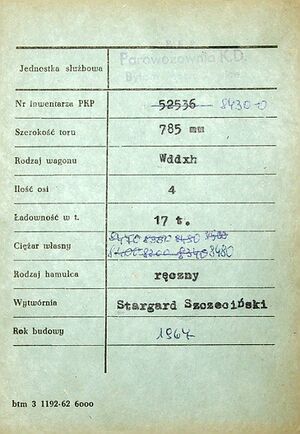 Jednostka służbowa
Parowozownia K.D.
Nr inwentarza PKP 52536 8430-0
Szerokość toru 785 mm
Rodzaj wagonu Wddxh
Ilość osi 4
Ładowność w t. 17 t.
Ciężar własny 8480
Rodzaj hamulca ręczny
Wytwórnia Stargard Szczeciński
Rok budowy 1964
btm 3 1192-62 6000